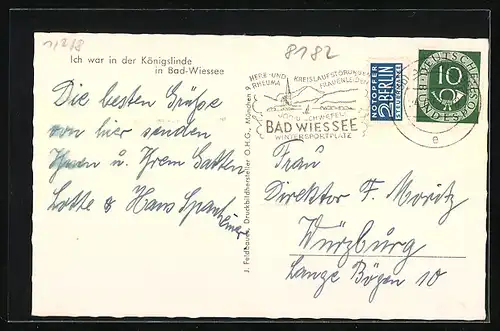 1,268
8182
Ich war in der Königslinde
in Bad-Wiessee
Die besten Grüße
von hier senden
Ihnen u. Ihrem Gatten
Lotte & Hans
J. Feldbauer, Druckbildhersteller O.H.G., München 9
HERZ- UND KREISLAUFSTÖRUNGEN
RHEUMA FRAUENLEIDEN
JOD- U. SCHWEFEL-
BAD WIESSEE
WINTERSPORTPLATZ
NOTOPFER
2 BERLIN
STEUERMARKE
DEUTSCHE BUNDESPOST
10
e
Frau
Direktor F. Moritz
Würzburg
Lange Bögen 10